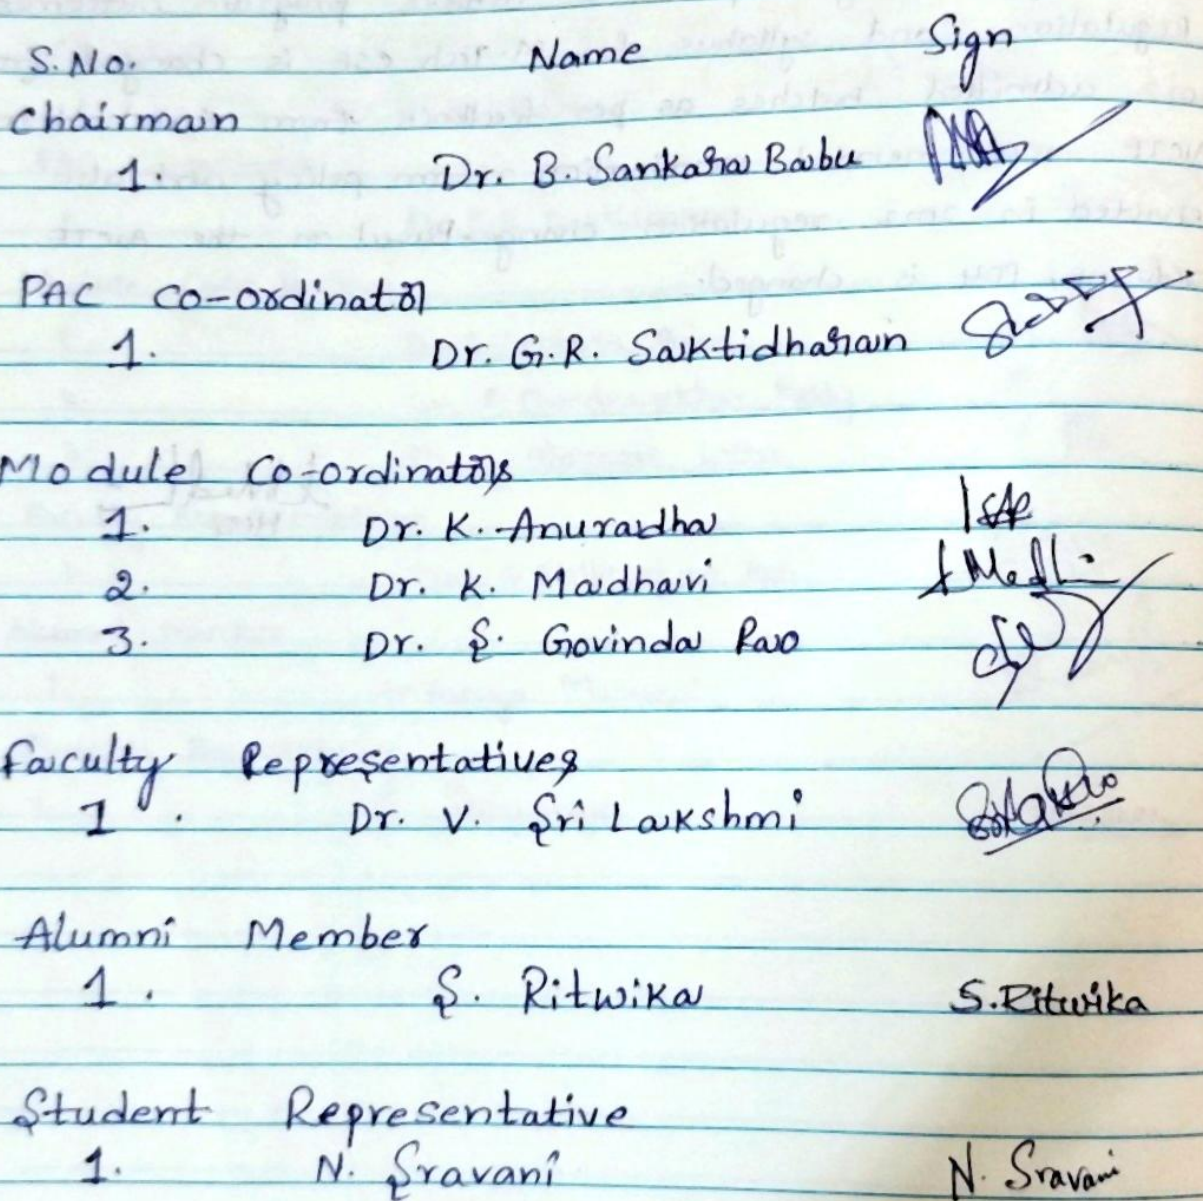 S.No. Name Sign
Chairman
1. Dr. B. Sankara Babu
PAC Co-ordinator
1. Dr. G.R. Saktidharan
Module Co-ordinators
1. Dr. K. Anuradha
2. Dr. K. Madhavi
3. Dr. S. Govinda Rao
Faculty Representatives
1. Dr. V. Sri Lakshmi
Alumni Member
1. S. Ritwika S.Ritwika
Student Representative
1. N. Sravani N. Sravani